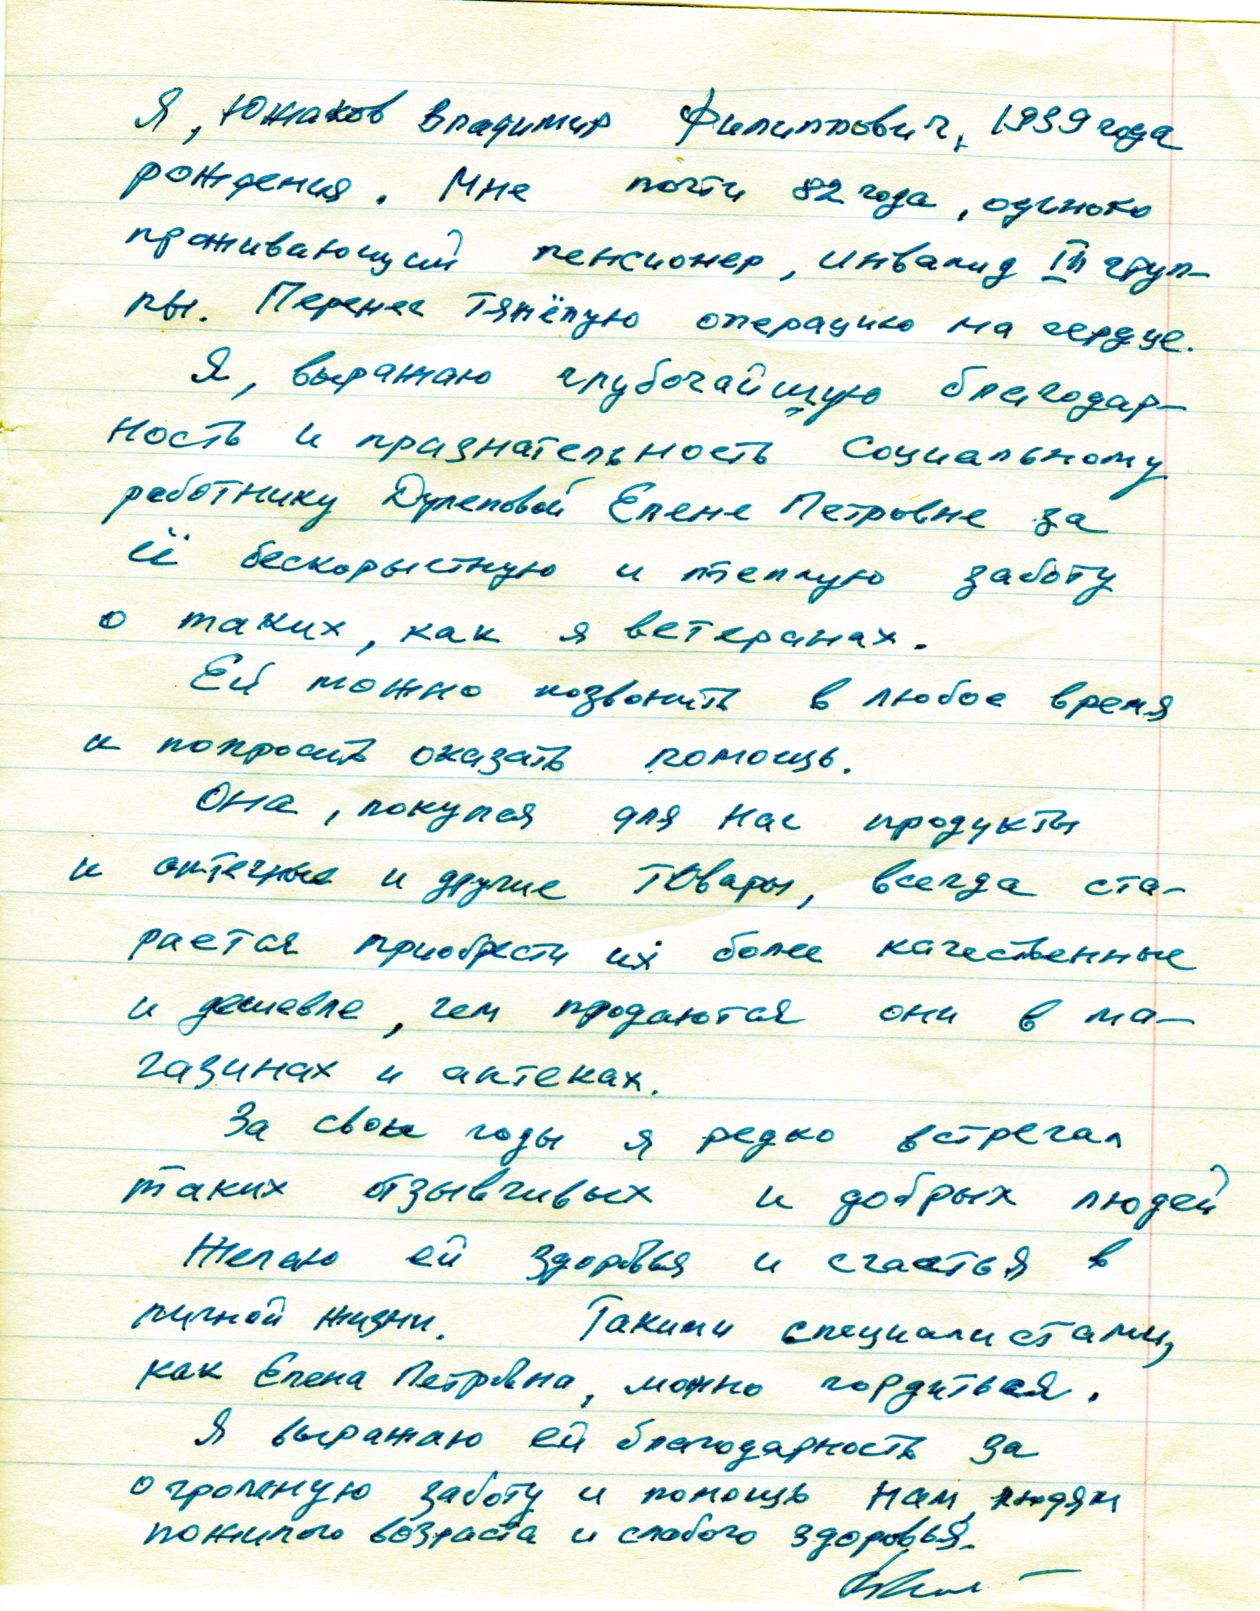 Я, Южаков Владимир Филиппович, 1939 года
рождения. Мне почти 82 года, одиноко
проживающий пенсионер, инвалид III груп-
пы. Перенес тяжёлую операцию на сердце.
Я, выражаю глубочайшую благодар-
ность и признательность Социальному
работнику Дулеповой Елене Петровне за
её бескорыстную и теплую заботу
о таких, как я ветеранах.
Ей можно позвонить в любое время
и попросить оказать помощь.
Она, покупая для нас продукты
и аптечные и другие товары, всегда ста-
рается приобрести их более качественные
и дешевле, чем продаются они в ма-
газинах и аптеках.
За свои годы я редко встречал
таких отзывчивых и добрых людей
Желаю ей здоровья и счастья в
личной жизни. Такими специалистами,
как Елена Петровна, можно гордиться.
Я выражаю ей благодарность за
огромную заботу и помощь нам, людям
пожилого возраста и слабого здоровья.